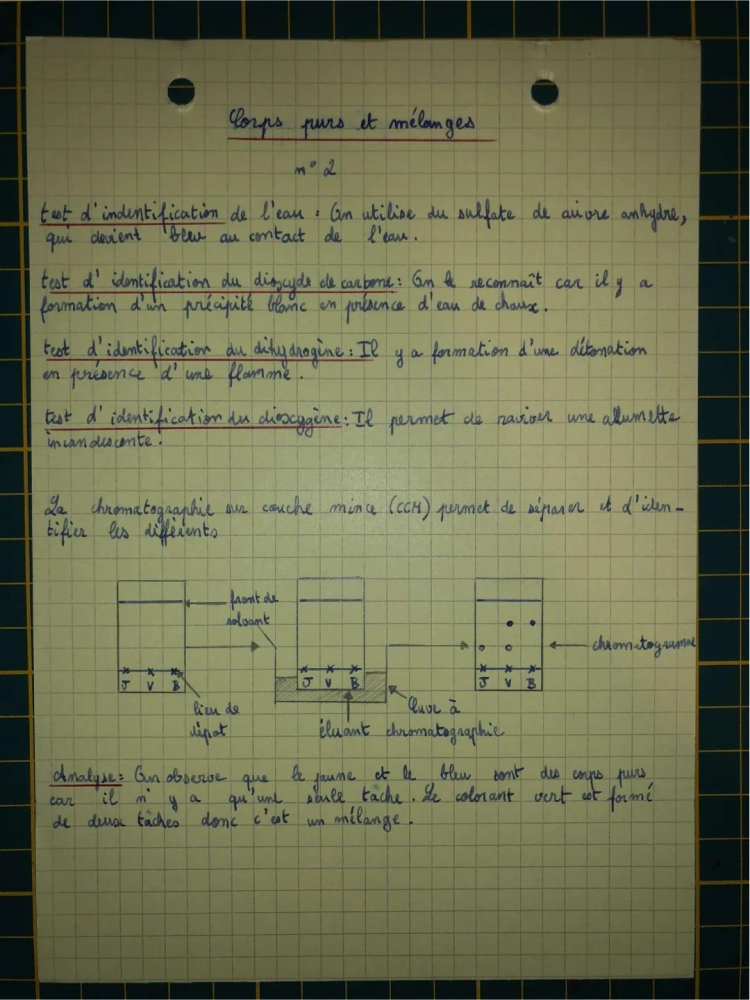 Corps purs et mélanges
n° 2
test d'indentification de l'eau : On utilise du sulfate de cuivre anhydre,
qui devient bleu au contact de l'eau.
test d'identification du dioxyde de carbone : On le reconnaît car il y a
formation d'un précipité blanc en présence d'eau de chaux.
test d'identification du dihydrogène : Il y a formation d'une détonation
en présence d'une flamme.
test d'identification du dioxygène : Il permet de raviver une allumette
incandescente.
La chromatographie sur couche mince (CCM) permet de séparer et d'iden-
tifier les différents
front de
solvant
chromatogramme
J V B
J V B
J V B
lieu de
dépot
Cuve à
chromatographie
éluant
Analyse : On observe que le jaune et le bleu sont des corps purs
car il n'y a qu'une seule tâche. Le colorant vert est formé
de deux tâches donc c'est un mélange.